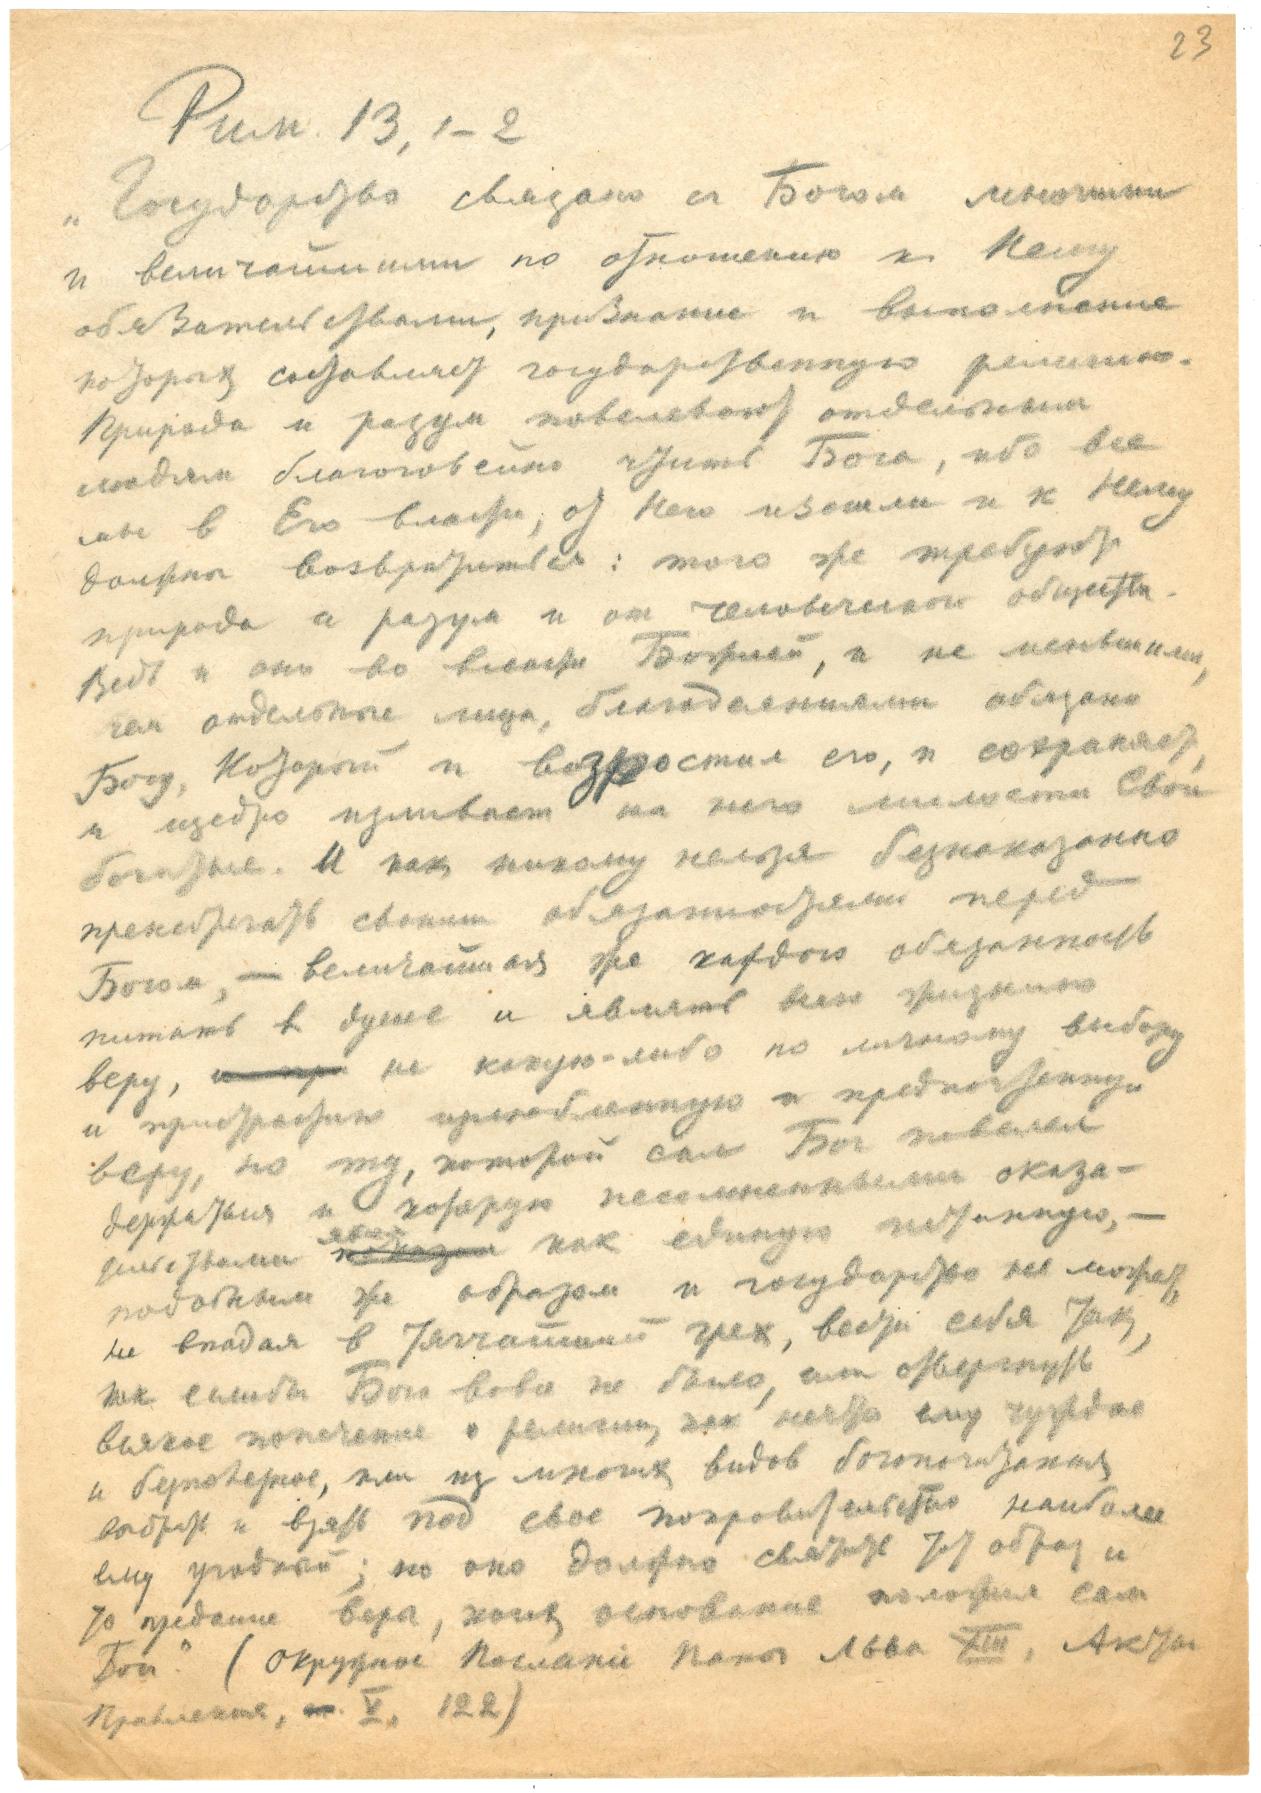 23
Рим. 13, 1–2
„Государство связано с Богом многими
и величайшими по отношению к Нему
обязательствами, признание и выполнение
которых составляет государственную религию.
Природа и разум повелевают отдельным
людям благоговейно чтить Бога, ибо все
мы в Его власти, от Него изошли и к Нему
должны возвратиться: того же требуют
природа и разум и от человеческого общества.
Ведь и оно во власти Божией, и не меньшими,
чем отдельные лица, благодеяниями обязано
Богу, Который и возростил его, и сохраняет,
и щедро изливает на него милости Свои
богатые. И как никому нельзя безнаказанно
пренебрегать своими обязанностями перед
Богом, — величайшая же каждого обязанность
питать в душе и являть всею жизнию
веру, не какую-либо по личному выбору
и пристрастию излюбленную и предпочтенную
веру, но ту, которой сам Бог повелел
держаться и которую несомненными оказа-
тельствами явил как единую истинную, —
подобным же образом и государство не может,
не впадая в тягчайший грех, вести себя так,
как если бы Бога вовсе не было, или отвергнуть
всякое попечение о религии, как нечто ему чуждое
и бесполезное, или из многих видов богопочитания
выбрать и взять под свое покровительство наиболее
ему угодный; но оно должно свято чтить тот образ и
то предание веры, коих основание положил сам
Бог.“ (Окружное Послание Папы Льва XIII, Акты
Правления, V, 122)